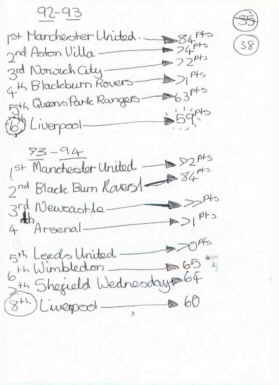 92-93
38
1st Manchester United 84 pts
2nd Aston Villa 74 pts
3rd Norwich City 72 pts
4th Blackburn Rovers 71 pts
5th Queens Park Rangers 63 pts
6th Liverpool 59 pts
93-94
1st Manchester United 92 pts
2nd Black Burn Rovers 84 pts
3rd Newcastle 77 pts
4th Arsenal 71 pts
5th Leeds United 70 pts
6th Wimbledon 65
7th Shefield Wednesday 64
8th Liverpool 60